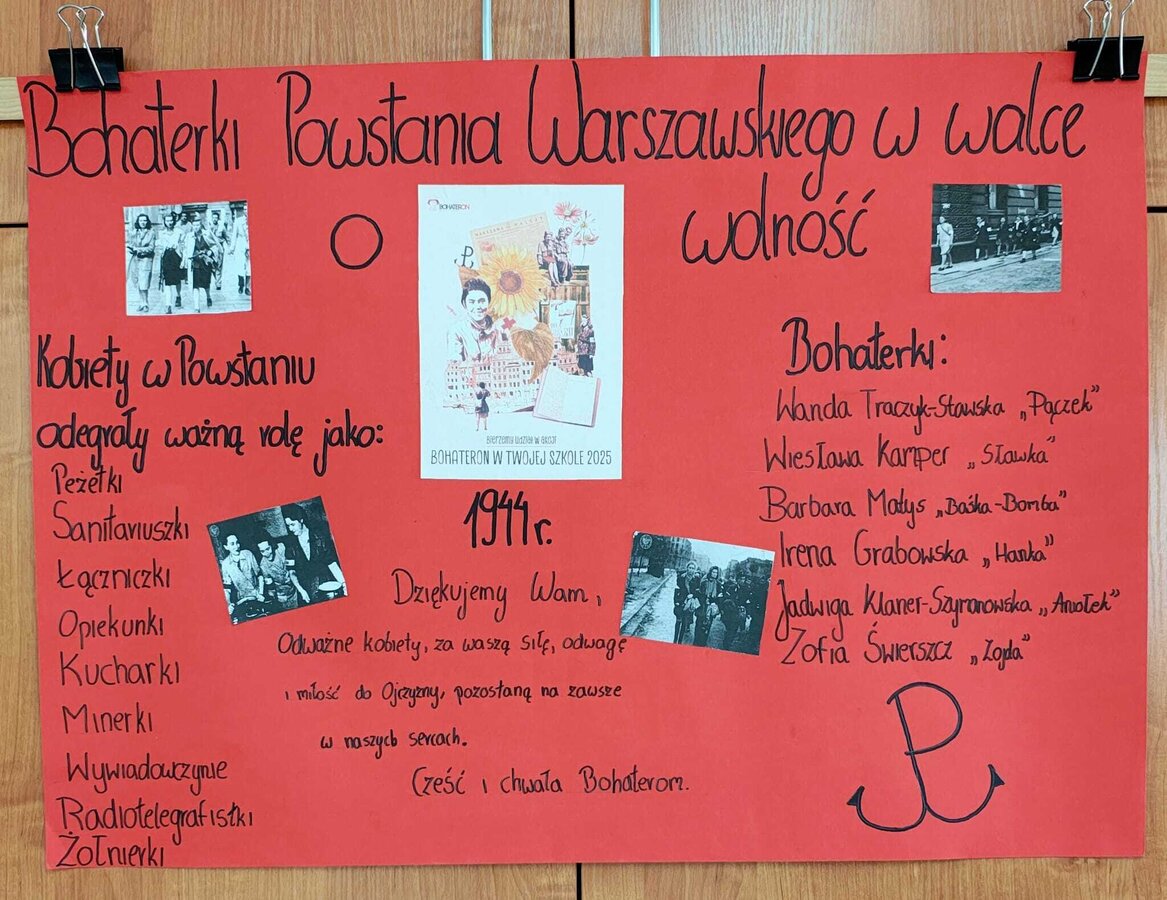 Bohaterki Powstania Warszawskiego w walce
o wolność
BOHATERON
WARSZAWA WALCZY
BIERZEMY UDZIAŁ W AKCJI
BOHATERON W TWOJEJ SZKOLE 2025
Kobiety w Powstaniu
odegrały ważną rolę jako:
Peżetki
Sanitariuszki
Łączniczki
Opiekunki
Kucharki
Minerki
Wywiadowczynie
Radiotelegrafistki
Żołnierki
1944 r.
Dziękujemy Wam,
Odważne kobiety, za waszą siłę, odwagę
i miłość do Ojczyzny, pozostaną na zawsze
w naszych sercach.
Cześć i chwała Bohaterom.
Bohaterki:
Wanda Traczyk-Stawska „Pączek”
Wiesława Kamper „Sławka”
Barbara Matys „Baśka-Bomba”
Irena Grabowska „Hanka”
Jadwiga Klaner-Szymanowska „Aniołek”
Zofia Świerszcz „Zojda”